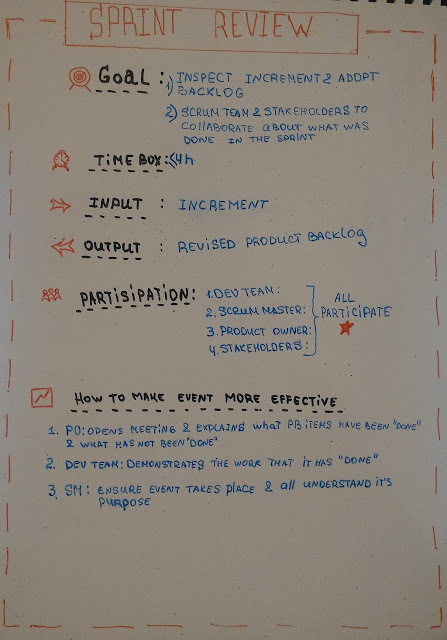 SPRINT REVIEW
GOAL : 1) INSPECT INCREMENT & ADOPT
BACKLOG
2) SCRUM TEAM & STAKEHOLDERS TO
COLLABORATE ABOUT WHAT WAS
DONE IN THE SPRINT
TIME BOX: ≤4h
INPUT : INCREMENT
OUTPUT : REVISED PRODUCT BACKLOG
PARTISIPATION: 1. DEV TEAM:
2. SCRUM MASTER:
3. PRODUCT OWNER:
4. STAKEHOLDERS:
ALL
PARTICIPATE
HOW TO MAKE EVENT MORE EFFECTIVE
1. PO: OPENS MEETING & EXPLAINS WHAT PB ITEMS HAVE BEEN "DONE"
& WHAT HAS NOT BEEN "DONE"
2. DEV TEAM: DEMONSTRATES THE WORK THAT IT HAS "DONE"
3. SM: ENSURE EVENT TAKES PLACE & all UNDERSTAND IT'S
PURPOSE